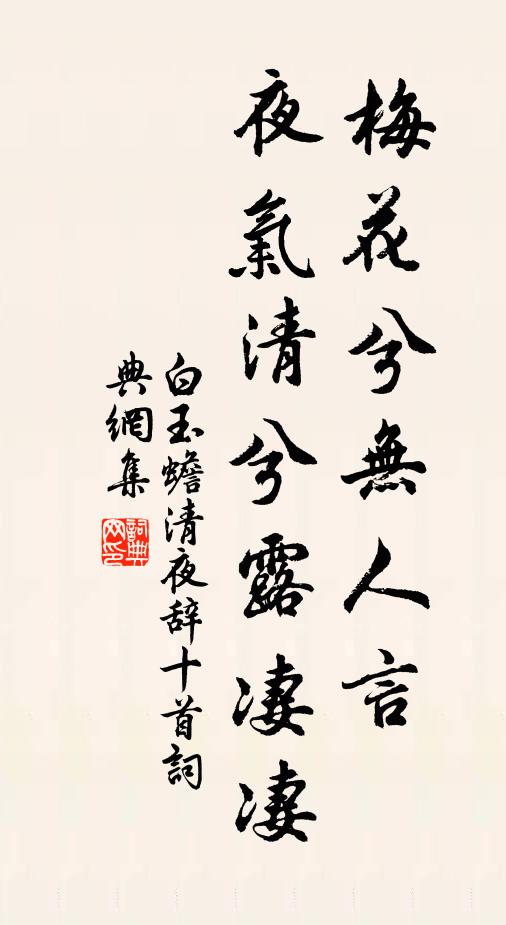 梅花兮無人言
夜氣清兮露凄凄
白玉蟾清夜辞十首詞
典網集
詞典网印